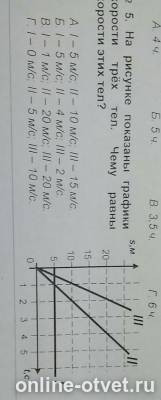 А. 4 ч.    Б. 5 ч.    В. 3,5 ч.    Г. 6 ч.
5. На рисунке показаны графики
скорости трёх тел. Чему равны
скорости этих тел?
А. I – 5 м/с; II – 10 м/с; III – 15 м/с.
Б. I – 5 м/с; II – 4 м/с; III – 2 м/с
В. I – 1 м/с; II – 20 м/с; III – 20 м/с.
Г. I – 0 м/с; II – 5 м/с; III – 10 м/с.
s,м
20
15
10
5
0 1 2 3 4 5 t,с
III
II
online-otvet.ru